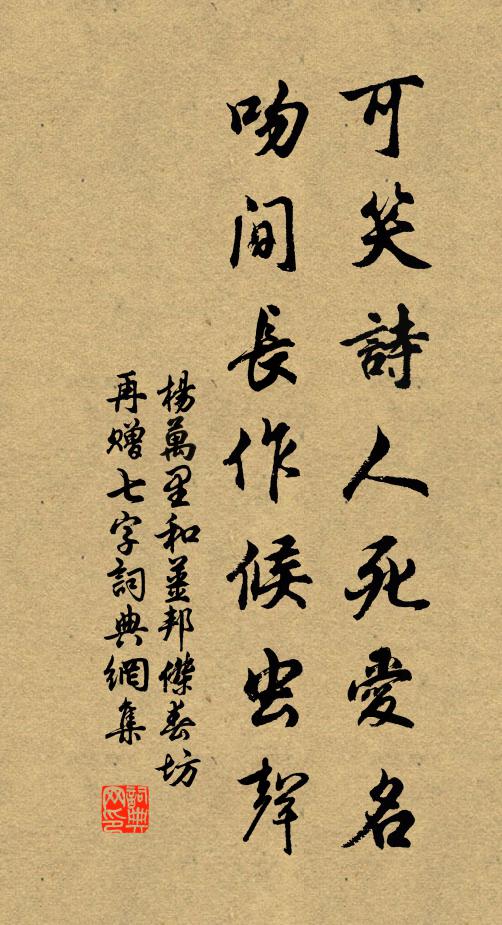 可笑詩人死愛名
吻間長作候虫聲
楊萬里和姜邦傑春坊
再贈七字詞典網集
詞典網印